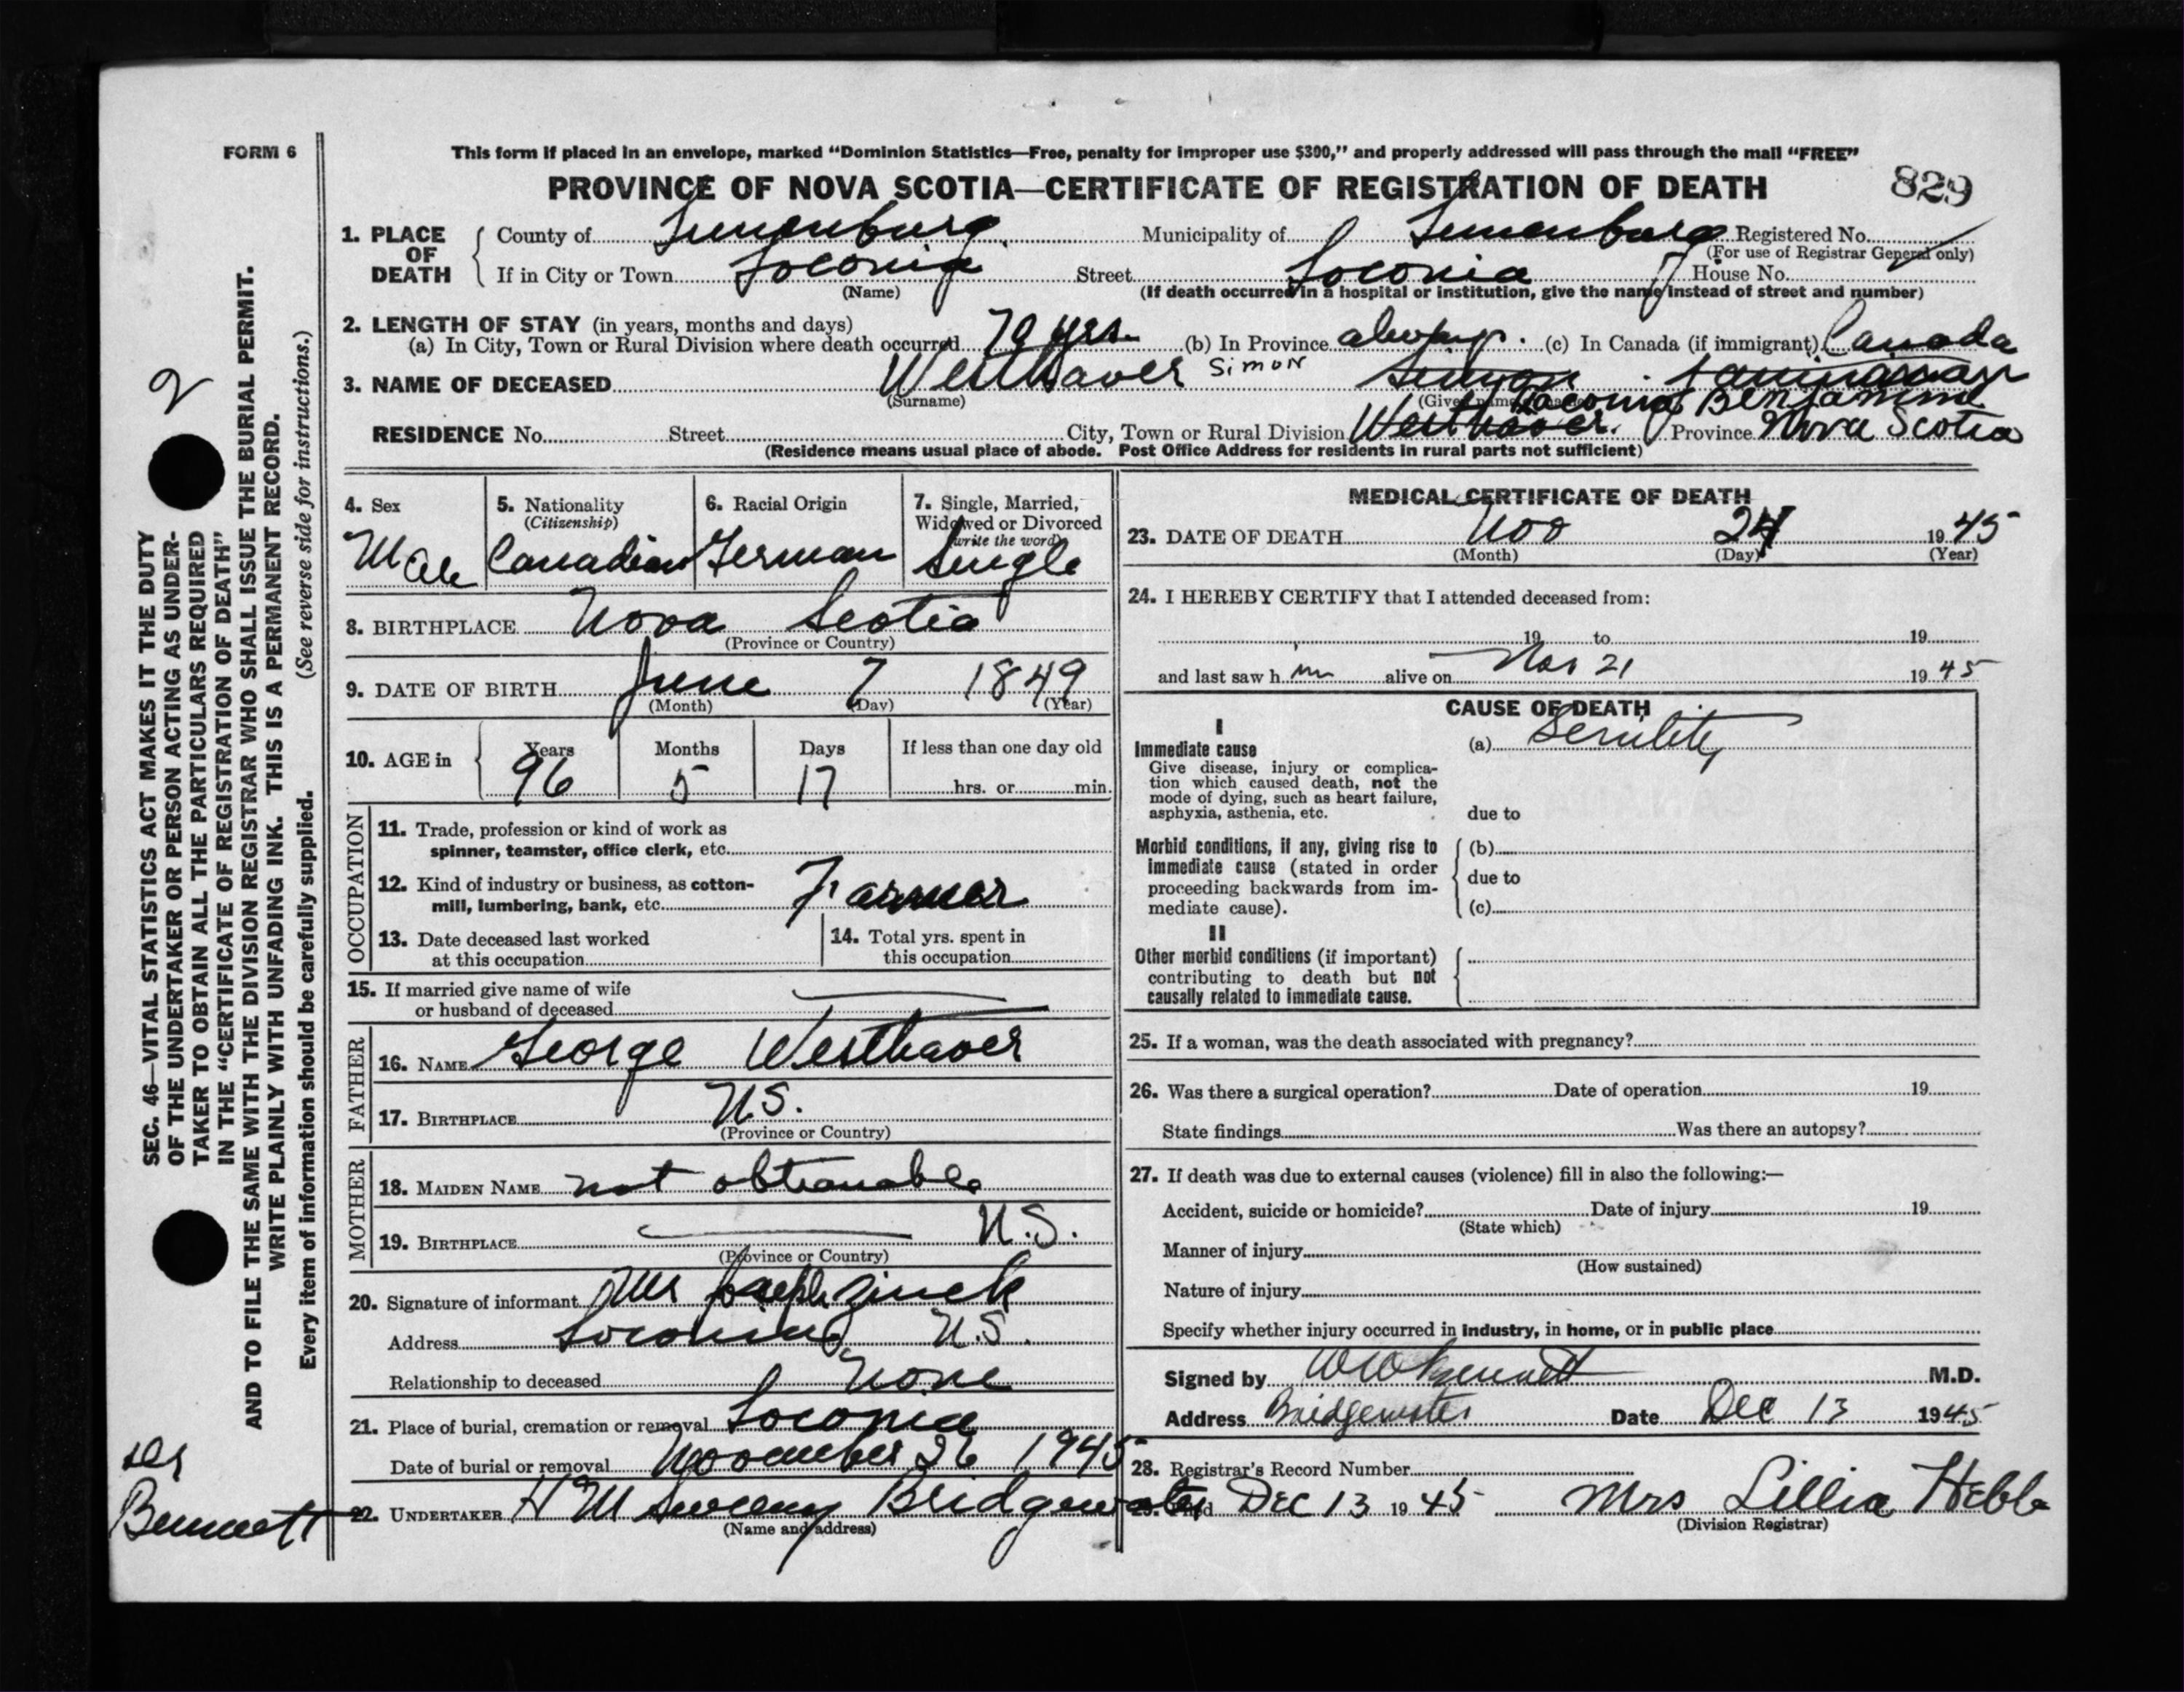 FORM 6
This form if placed in an envelope, marked "Dominion Statistics—Free, penalty for improper use $300," and properly addressed will pass through the mail "FREE"
PROVINCE OF NOVA SCOTIA—CERTIFICATE OF REGISTRATION OF DEATH
829
1. PLACE OF DEATH
County of Lunenburg Municipality of Lunenburg Registered No.
(For use of Registrar General only)
If in City or Town Street House No.
(Name) (If death occurred in a hospital or institution, give the name instead of street and number)
2. LENGTH OF STAY (in years, months and days)
(a) In City, Town or Rural Division where death occurred 70 yrs. (b) In Province always. (c) In Canada (if immigrant) Canada
3. NAME OF DECEASED Westhaver Simon
(Surname) Benjamin
RESIDENCE No. Street City, Town or Rural Division Westhaver. Province Nova Scotia
(Residence means usual place of abode. Post Office Address for residents in rural parts not sufficient)
4. Sex
Male
5. Nationality
(Citizenship)
Canadian
6. Racial Origin
German
7. Single, Married,
Widowed or Divorced
(write the word)
Single
8. BIRTHPLACE Nova Scotia
(Province or Country)
9. DATE OF BIRTH June 7 1849
(Month) (Day) (Year)
10. AGE in
Years Months Days If less than one day old
96 5 17 hrs. or min.
OCCUPATION
11. Trade, profession or kind of work as
spinner, teamster, office clerk, etc.
12. Kind of industry or business, as cotton-
mill, lumbering, bank, etc. Farmer
13. Date deceased last worked
at this occupation
14. Total yrs. spent in
this occupation
15. If married give name of wife
or husband of deceased
FATHER
16. NAME George Westhaver
17. BIRTHPLACE N.S.
(Province or Country)
MOTHER
18. MAIDEN NAME not obtianable
19. BIRTHPLACE N.S.
(Province or Country)
20. Signature of informant Joseph Zinck
Address N.S.
Relationship to deceased None
21. Place of burial, cremation or removal
Date of burial or removal November 26 1945
22. UNDERTAKER H M Sweeny Bridgewater
(Name and address)
MEDICAL CERTIFICATE OF DEATH
23. DATE OF DEATH Nov 24 1945
(Month) (Day) (Year)
24. I HEREBY CERTIFY that I attended deceased from:
19 to 19
and last saw h im alive on Nov 21 1945
CAUSE OF DEATH
I
Immediate cause
Give disease, injury or complica-
tion which caused death, not the
mode of dying, such as heart failure,
asphyxia, asthenia, etc.
(a) Senility
due to
Morbid conditions, if any, giving rise to
immediate cause (stated in order
proceeding backwards from im-
mediate cause).
(b)
due to
(c)
II
Other morbid conditions (if important)
contributing to death but not
causally related to immediate cause.
25. If a woman, was the death associated with pregnancy?
26. Was there a surgical operation? Date of operation 19
State findings Was there an autopsy?
27. If death was due to external causes (violence) fill in also the following:—
Accident, suicide or homicide? Date of injury 19
(State which)
Manner of injury
(How sustained)
Nature of injury
Specify whether injury occurred in industry, in home, or in public place
Signed by Bennett M.D.
Address Bridgewater Date Dec 13 1945
28. Registrar's Record Number
29. Filed Dec 13 1945 Mrs Lillia Hebb
(Division Registrar)
2
SEC. 46—VITAL STATISTICS ACT MAKES IT THE DUTY
OF THE UNDERTAKER OR PERSON ACTING AS UNDER-
TAKER TO OBTAIN ALL THE PARTICULARS REQUIRED
IN THE "CERTIFICATE OF REGISTRATION OF DEATH"
AND TO FILE THE SAME WITH THE DIVISION REGISTRAR WHO SHALL ISSUE THE BURIAL PERMIT.
WRITE PLAINLY WITH UNFADING INK. THIS IS A PERMANENT RECORD.
Every item of information should be carefully supplied. (See reverse side for instructions.)
Bennett